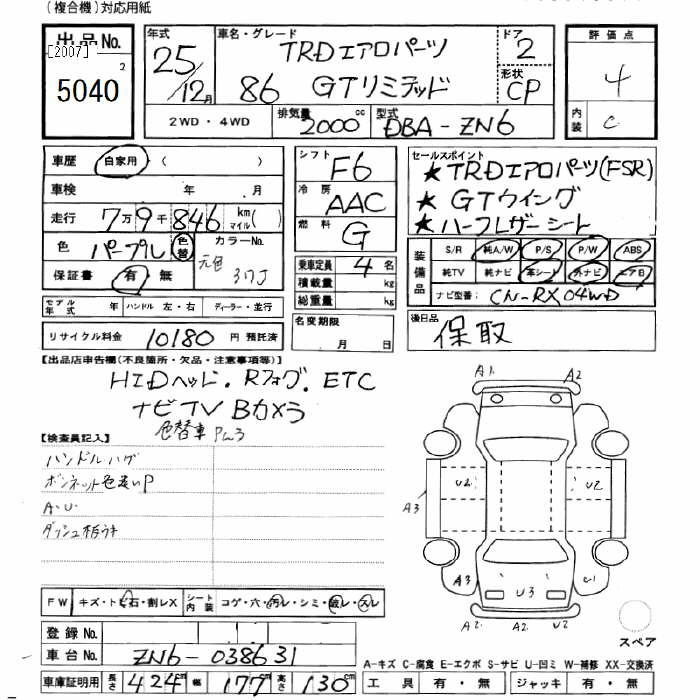 (複合機)対応用紙
出品No.
[2007]
2
5040
年式
25/12月
車名・グレード
TRDエアロパーツ
86 GTリミテッド
ドア
2
形状
CP
評価点
4
内装
C
2WD・4WD
排気量 2000 cc
型式 DBA-ZN6
車歴 自家用・( )
車検 年 ・ 月
走行 7万9千846 km マイル( )
色 パープル 色替
カラーNo.
元色 37J
保証書 有・無
モデル年式 年 ハンドル 左・右 ディーラー・並行
リサイクル料金 10180 円 預託済
シフト F6
冷房 AAC
燃料 G
乗車定員 4 名
積載量 kg
総重量 kg
名変期限
月 日
セールスポイント
★TRDエアロパーツ(FSR)
★GTウイング
★ハーフレザーシート
装備品
S/R 純A/W P/S P/W ABS
純TV 純ナビ 革シート 外ナビ エアB
ナビ型番: CN-RX04WD
後日品
保取
【出品店申告欄(不良箇所・欠品・注意事項等)】
HIDヘッド.Rフォグ.ETC
ナビTV Bカメラ
色替車
【検査員記入】
ハンドルハゲ
ボンネット色違いP
A.U.
ダッシュ
A1 A2
U2 U2
A3
A3 U3 U1
A2 A2
スペア
FW キズ・トビ石・割レX
シート内装 コゲ・穴・汚レ・シミ・破レ・スレ
登録No.
車台No. ZN6-038631
車庫証明用 長さ 424cm 幅 177cm 高さ 130cm
A-キズ C-腐食 E-エクボ S-サビ U-凹ミ W-補修 XX-交換済
工具 有・無 ジャッキ 有・無